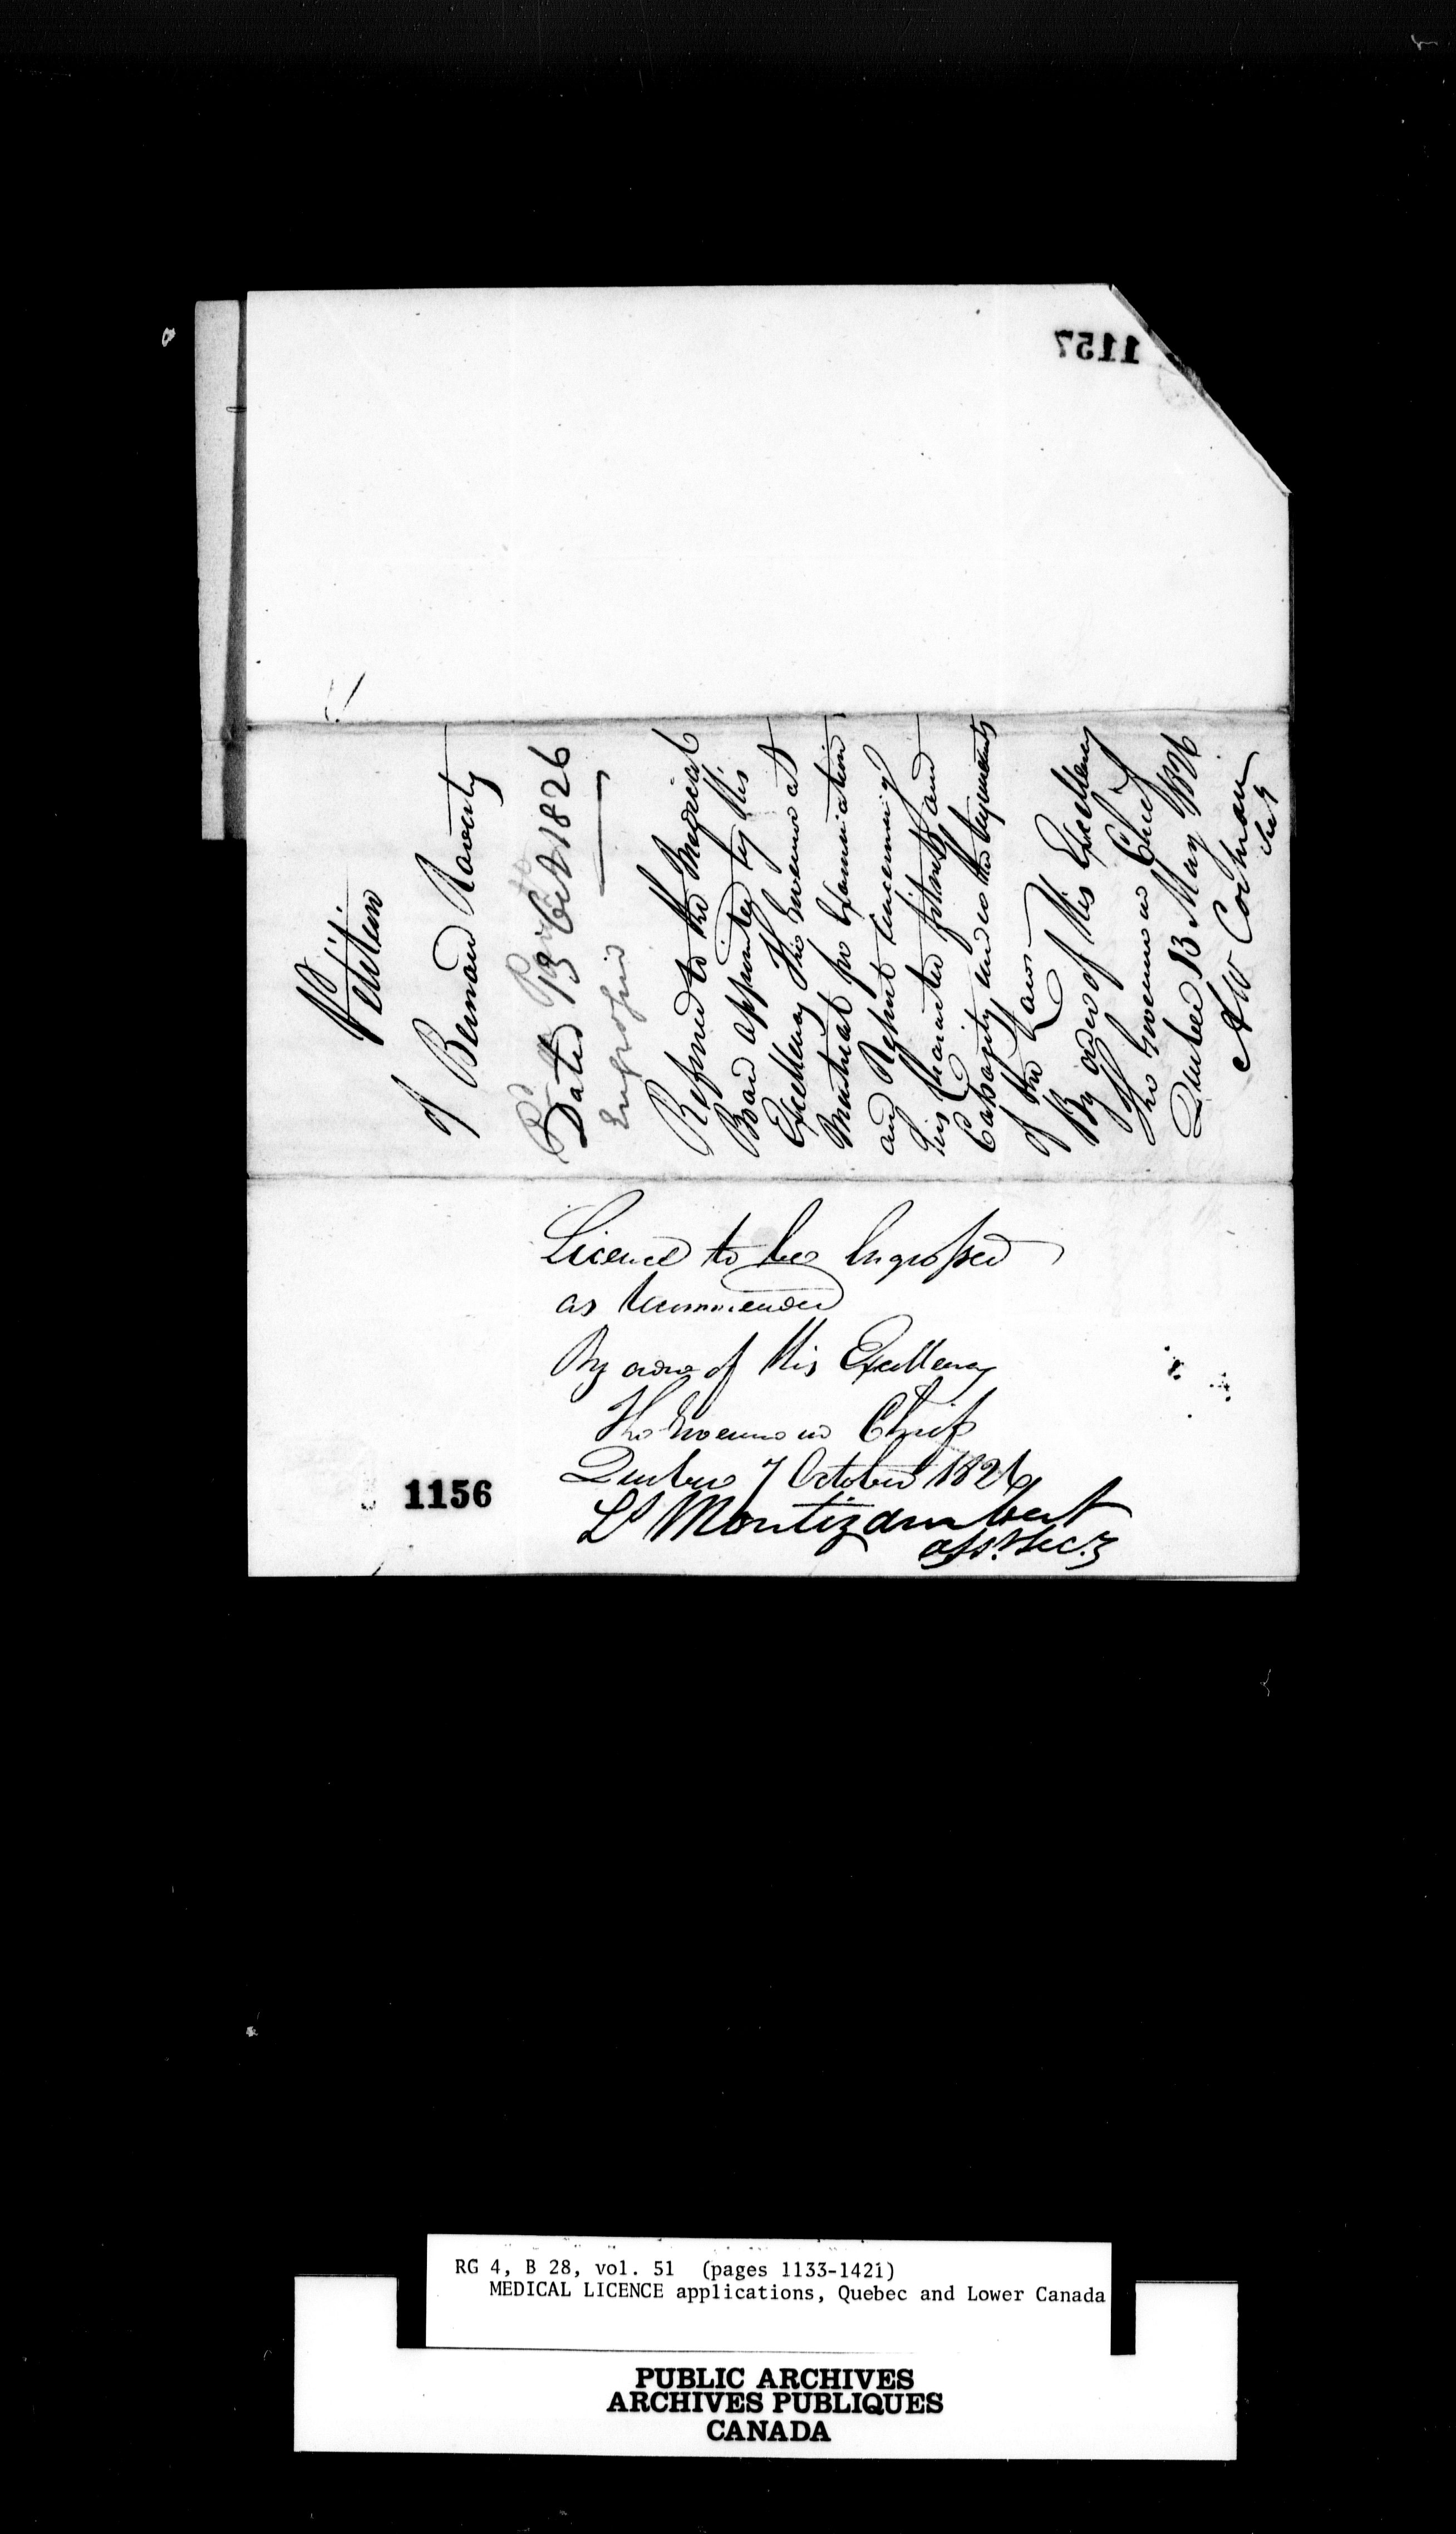 1157
Petition
of Bernard Raverty
Dated 13 Oct 1826
Engrossed
Referred to the Medical
Board appointed by His
Excellency The Governor at
Montreal for Examination
and Report concerning
his Character fitness and
Capacity under the requirements
of the Laws
By order of His Excellency
The Governor in Chief
Quebec 13 May 1826
A W Cochran
Secy
Licence to be Engrossed
as recommended
By order of His Excellency
The Governor in Chief
Quebec 7 October 1826
Ls Montizambert
Asst. Secy
1156
RG 4, B 28, vol. 51 (pages 1133-1421)
MEDICAL LICENCE applications, Quebec and Lower Canada
PUBLIC ARCHIVES
ARCHIVES PUBLIQUES
CANADA